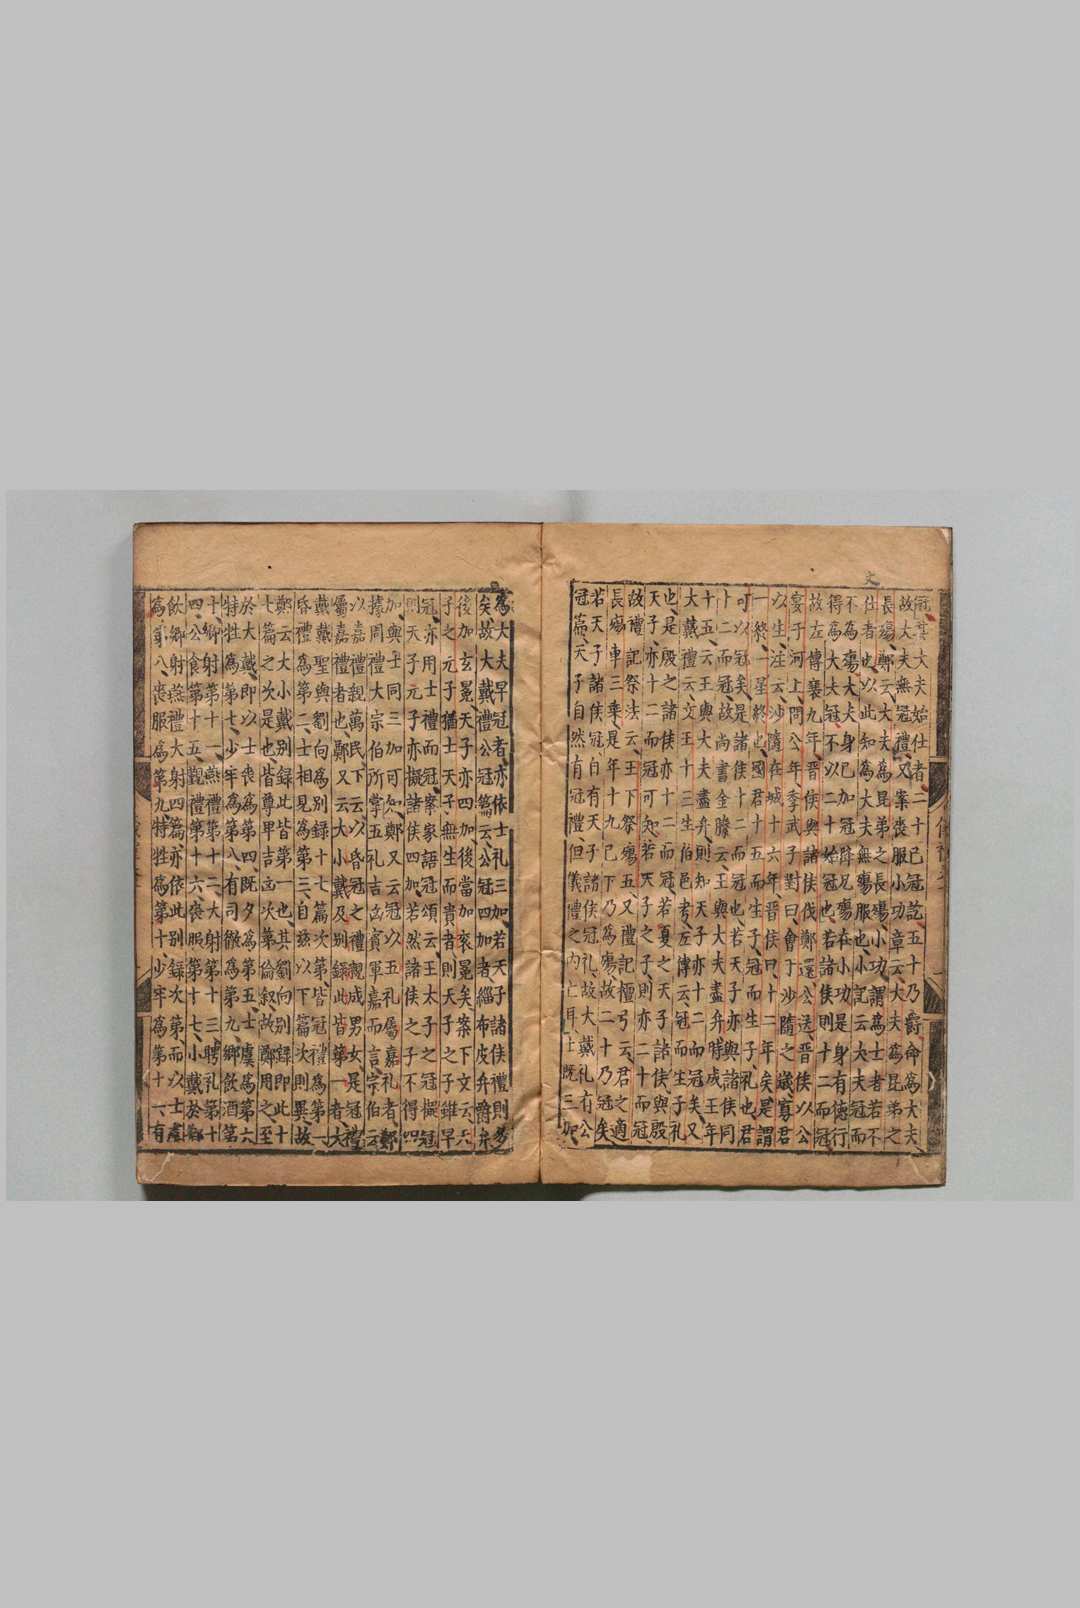 文
冠其大夫始仕者二十已冠訖五十乃爵命為大夫
故大夫無冠禮又案喪服小功章云大夫為昆弟之
長殤鄭云大夫為昆弟之長殤小功謂為士者若不
仕者也以此知為大夫無殤服也小記云大夫冠而
不為殤大夫身已加冠降兄殤在小功是身有德行
得為大夫冠不以二十始冠也若諸侯則十二而冠
故左傳襄九年晉侯與諸侯伐鄭還公送晉侯以公
宴于河上問公年季武子對曰會于沙隨之歲寡君
以生注云沙隨在成十六年晉侯曰十二年矣是謂
一終一星終也國君十五而生子冠而生子礼也君
可以冠矣是諸侯十二而冠也若天子亦與諸侯同
十二而冠故尚書金縢云王與大夫盡弁時成王年
十五云王與大夫盡弁則知天子亦十二而冠矣又
大戴禮云文王十三生伯邑考左傳云冠而生子礼
也是殷之諸侯亦十二而冠若夏之天子諸侯與殷
天子亦十二而冠可知若天子之子則亦二十而冠
故禮記祭法云王下祭殤五又禮記檀弓云君之適
長殤車三乘是年十九已下乃為殤故二十乃冠矣
若天子諸侯冠自有天子諸侯冠礼故大戴礼有公
冠篇天子自然有冠禮但儀禮之内亡耳士既三加
為大夫早冠者亦依士礼三加若天子諸侯禮則多
矣故大戴禮公冠篇云公冠四加者緇布皮弁爵弁
後加玄冕天子亦四加後當加衮冕矣案下文云天
子之元子猶士天子無生而貴者則天子之子雖早
冠亦用士禮而冠案家語冠頌云王太子之冠擬冠
則天子元子亦擬諸侯四加若然諸侯之子不得四
加與士同三加可知鄭又云冠以五礼屬嘉礼者鄭
據周禮大宗伯所掌五礼吉凶賓軍嘉而言宗伯云
以嘉禮親萬民下云以昏冠之禮親成男女是冠禮
屬嘉禮者也鄭又云大小戴及別錄此皆第一者大
戴戴聖與劉向為別錄十七篇次第皆冠禮為第一
昏禮為第二士相見為第三自兹以下篇次則異故
鄭云大小戴別錄此皆第一也其劉向別錄即此十
七篇之次是也皆尊卑吉凶次第倫叙故鄭用之至
於大戴即以士喪為第四既夕為第五士虞為第六
特牲為第七少牢為第八有司徹為第九鄉飲酒第
十鄉射第十一燕禮第十二大射第十三聘礼第十
四公食第十五覲禮第十六喪服第十七小戴於鄉
飲鄉射燕禮大射四篇亦依此別錄次第而以士虞
為第八喪服為第九特牲為第十少牢為第十一有